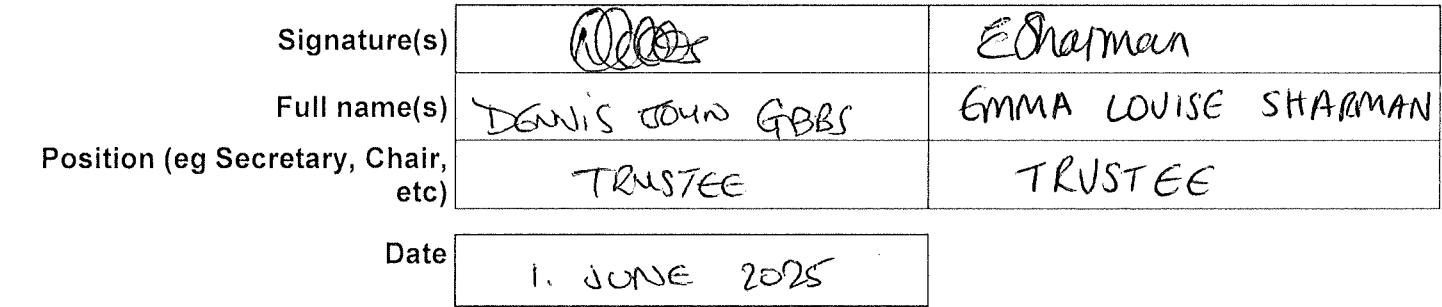 Signature(s) ESharman
Full name(s) DENNIS JOHN GIBBS EMMA LOUISE SHARMAN
Position (eg Secretary, Chair,
etc) TRUSTEE TRUSTEE
Date 1. JUNE 2025